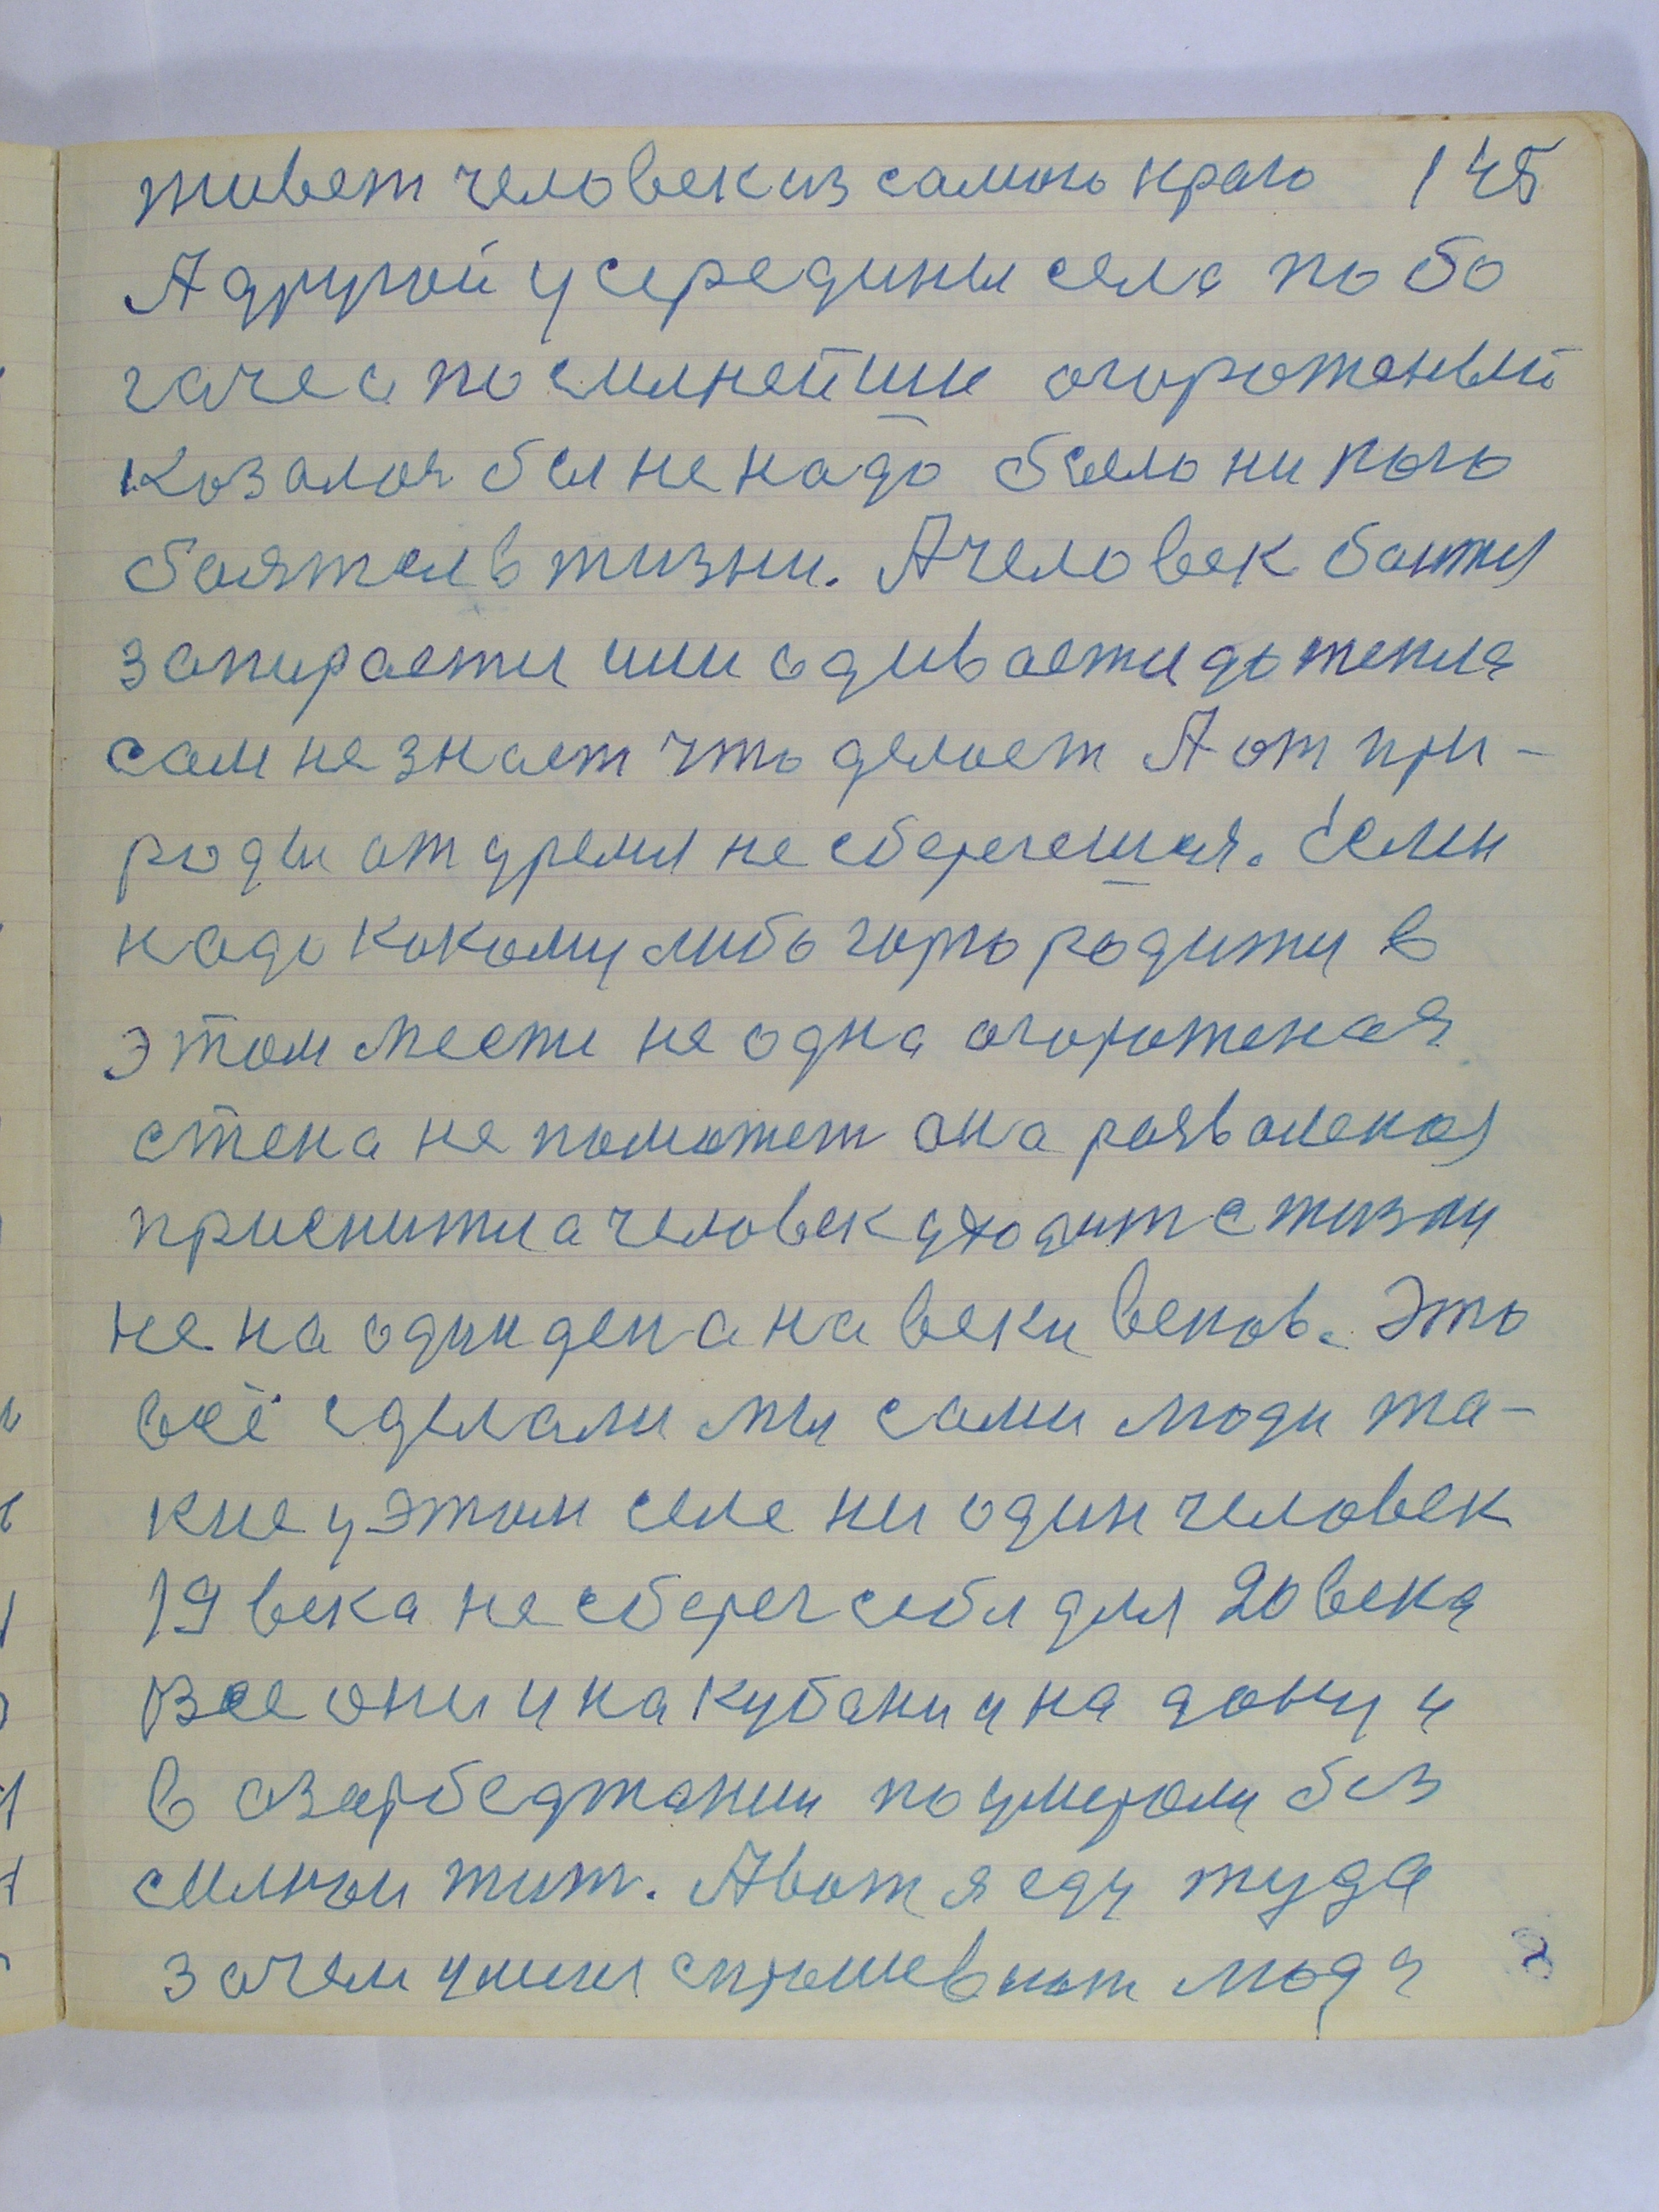 живет человек из самого краю 145
А другой у середины села по бо
гаче а по силнейши огороженый
казалоя бы не надо было ни кого
боятся в жизни. А человек боитя
запирается или одивается до тепла
сам не знает что делает А от при-
роды от дремы не сберегешся. Если
надо какому либо горю родится в
этом месте не одна огороженая
стена не поможет она развалення
приснится а человек уходит с жизни
не на один ден а на веки веков. Это
всё сделали мы сами люди та-
кие у этом селе ни один человек
19 века не сберег себя для 20 века
Все они и на кубани и на дону и
в азарбеджании поумерали без
силном жит. А вот я еду туда
зачем у миня спрошевают люди